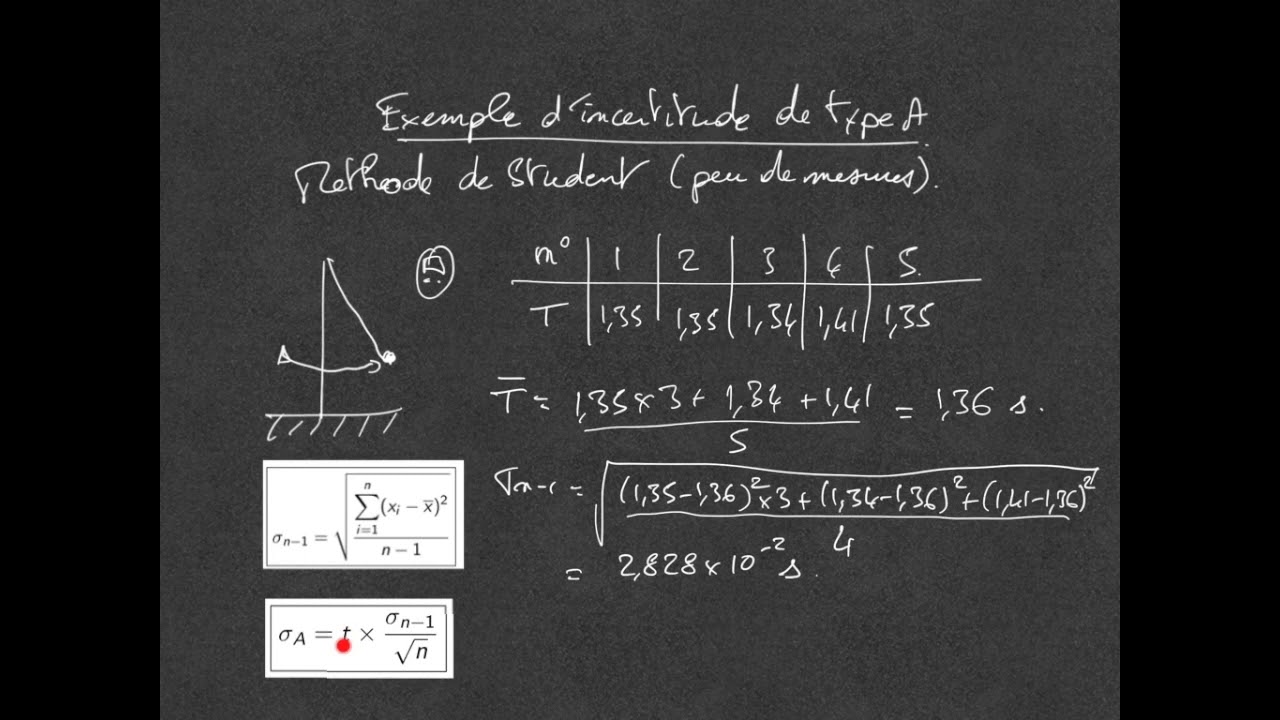 Exemple d'incertitude de type A.
Méthode de Student (peu de mesures).
n° 1 2 3 4 5
T 1,35 1,35 1,34 1,41 1,35
T̄ = (1,35 × 3 + 1,34 + 1,41) / 5 = 1,36 s.
σn-1 = √(((1,35-1,36)² × 3 + (1,34-1,36)² + (1,41-1,36)²) / 4)
= 2,828 × 10⁻² s.
σn−1 = √(∑ⁿᵢ₌₁(xᵢ − x̄)² / (n − 1))
σA = t × σn−1 / √n